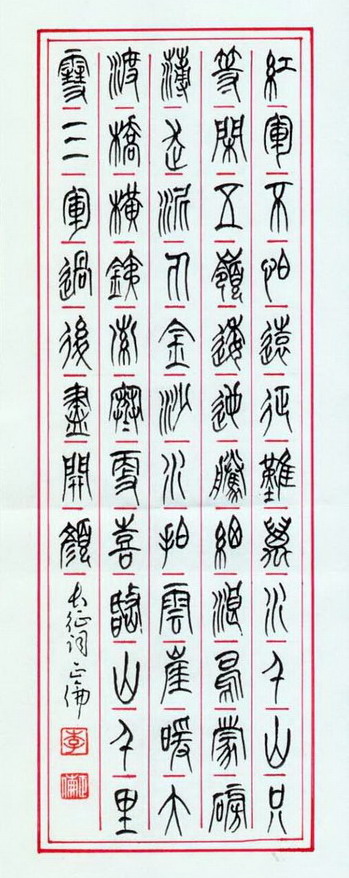 紅軍不怕遠征難萬水千山只
等閑五嶺逶迤騰細浪烏蒙磅
薄走泥丸金沙水拍雲崖暖大
渡橋橫鐵索寒更喜岷山千里
雪三軍過後盡開顏 長征詞
李